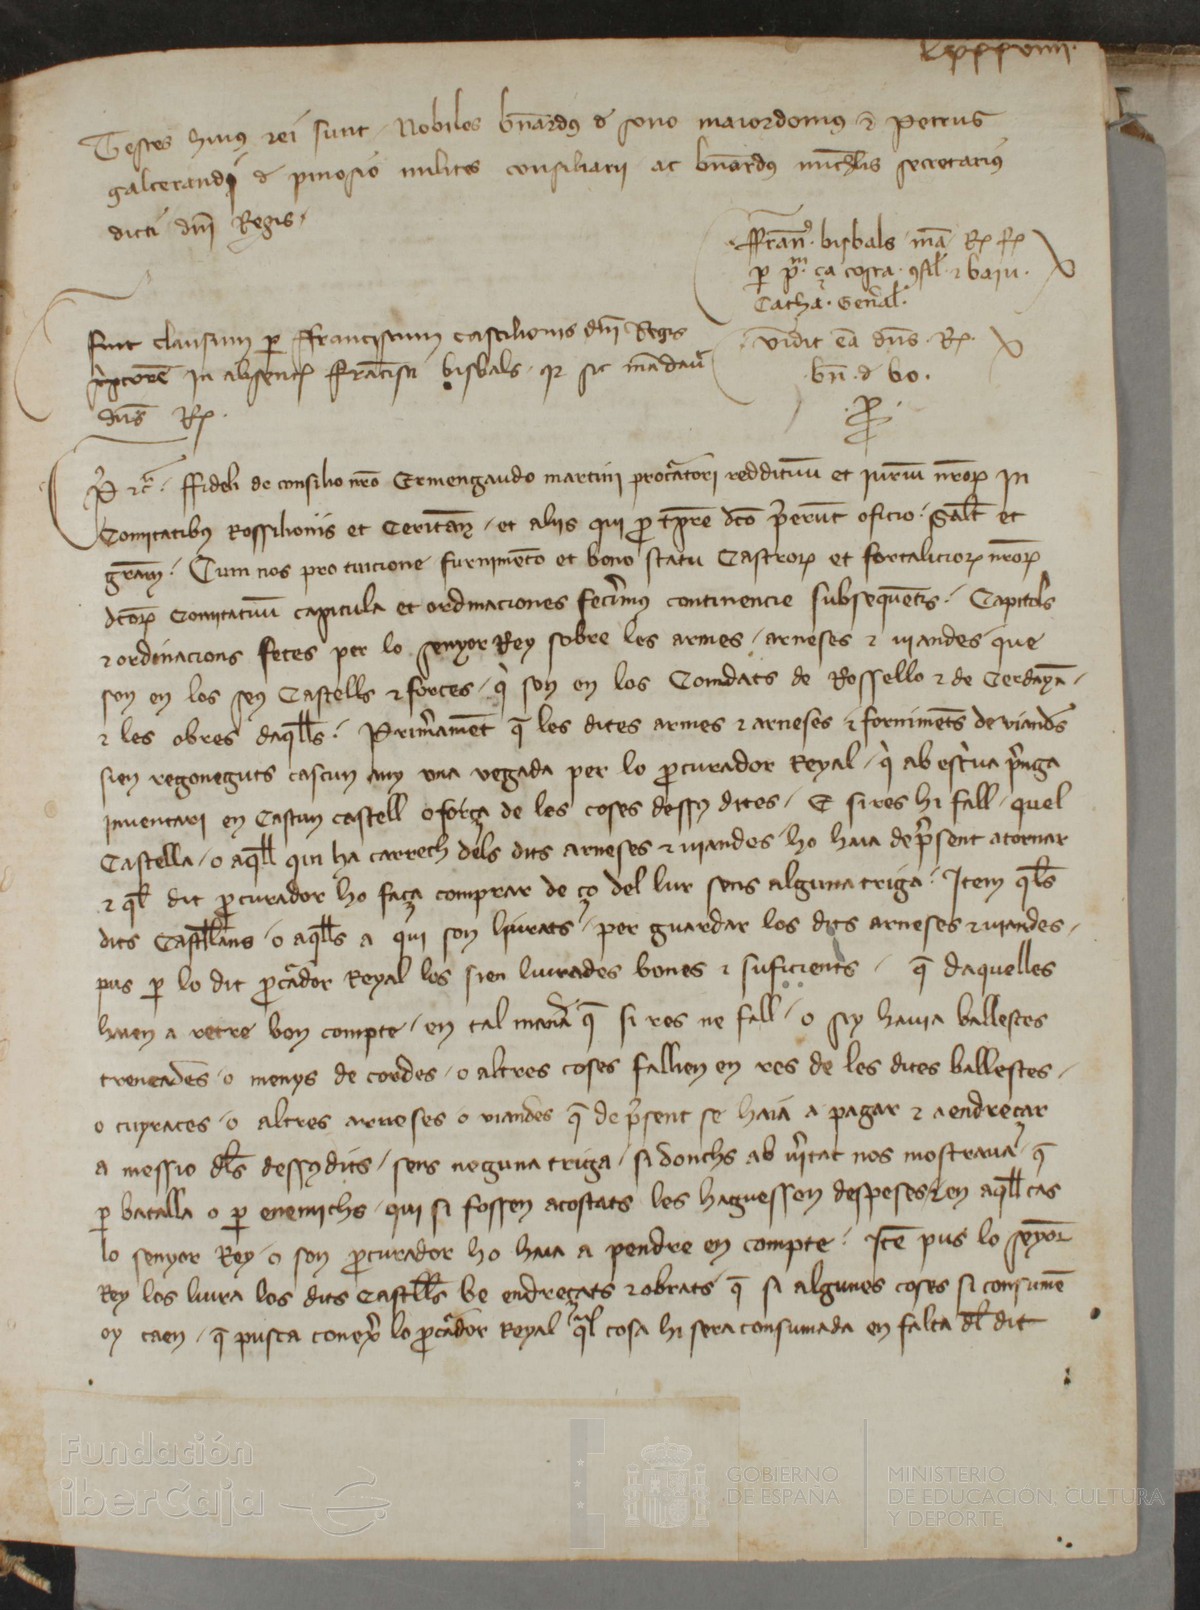 Lxxxviiii.
Testes huius rei sunt Nobiles bnardus d sono maiordomus & Petrus
galcerandi d pinosio milites consiliarii ac bnardus michlis secretarius
dicti dni Regis
ffran. bisbals ma R f
p P. ça costa 9sil & baiu.
Catha. Genal.
Vidit ea dns R
bn d bo.
P
fuit clausum p ffranciscum castilionis dni Regis
scptore in absent ffrancisci bisbals q sic mandaut
dns R
P &c ffideli de consilio nro Ermengaudo martini procatori reddituum et iurium nror in
Comitatibus Rossilionis et Ceritan et aliis qui p tpre dco pfuerunt oficio Salt et
gram. Cum nos pro tuicione furnimento et bono statu Castror et fortalicior nror
dcor Comitatuum capitula et ordinaciones fecimus continencie subsequentis Capitols
& ordinacions fetes per lo senyor Rey sobre les armes arneses & viandes que
son en los seus Castells & forces q son en los Comdats de Rossello & de Cerdaya
& les obres daqlls. Primament q les dites armes & arneses & forniments de viandes
sien regoneguts cascun any una vegada per lo pcurador Reyal q ab escriva prenga
inventari en Cascun castell o força de les coses dessus dites E si res hi fall quel
Castella o aqll qui ha carrech dels dits arneses & viandes ho haia de psent atornar
& ql dit pcurador ho faça comprar de ço del lur sens alguna triga Item qls
dits Castllans o aqlls a qui son liurats per guardar los dits arneses & viandes
pus p lo dit pcador Reyal los sien liurades bones & suficients q daquelles
haien a retre bon compte en tal manera q si res ne fall o sey havia ballestes
trencades o menys de cordes o altres coses fallien en res de les dites ballestes
o cuyraces o altres arneses o viandes q de psent se haia a pagar & a endreçar
a messio dls dessus dits sens neguna triga si donchs ab vitat nos mostrava q
p batalla o p enemichs qui si fossen acostats les haguessen despeses & en aqll cas
lo senyor Rey o son pcurador ho haia a pendre en compte Ite pus lo seyor
Rey los liura los dits Castlls be endreçats & obrats q si algunes coses si consume
oy caen q pusca conexer lo pcador Reyal ql cosa hi sera consumada en falta dl dit
Fundación
iberCaja
GOBIERNO
DE ESPAÑA
MINISTERIO
DE EDUCACIÓN, CULTURA
Y DEPORTE